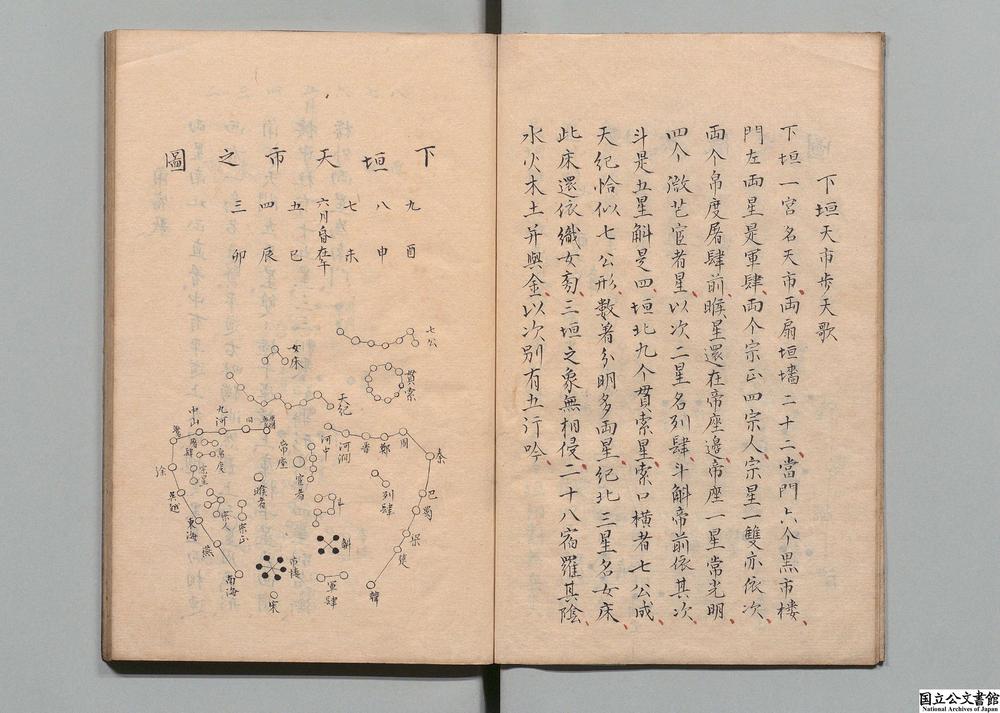 下垣天市歩天歌
下垣一宮名天市両扇垣墻二十二當門六个黒市楼
門左両星是軍肆両个宗正四宗人宗星一雙亦依次
両个帛度屠肆前睺星還在帝座邉帝座一星常光明
四个微茫宦者星以次二星名列肆斗斛帝前依其次
斗是五星斛是四垣北九个貫索星索口横者七公成
天紀恰似七公形数着分明多両星紀北三星名女床
此床還依織女旁三垣之象無相侵二十八宿羅其陰
水火木土并與金以次別有五行吟
下垣天市之圖
九 酉
八 申
七 未
六月昏在午
五 巳
四 辰
三 卯
七公
貫索
女床
天紀
秦
周
鄭
晋
河澗
河中
巴
蜀
楚
韓
列肆
斗
斛
軍肆
帝座
宦者
睺者
市楼
宋
九河
中山
屠肆
帛度
宗星
宗人
宗正
徐
呉越
東海
燕
南海